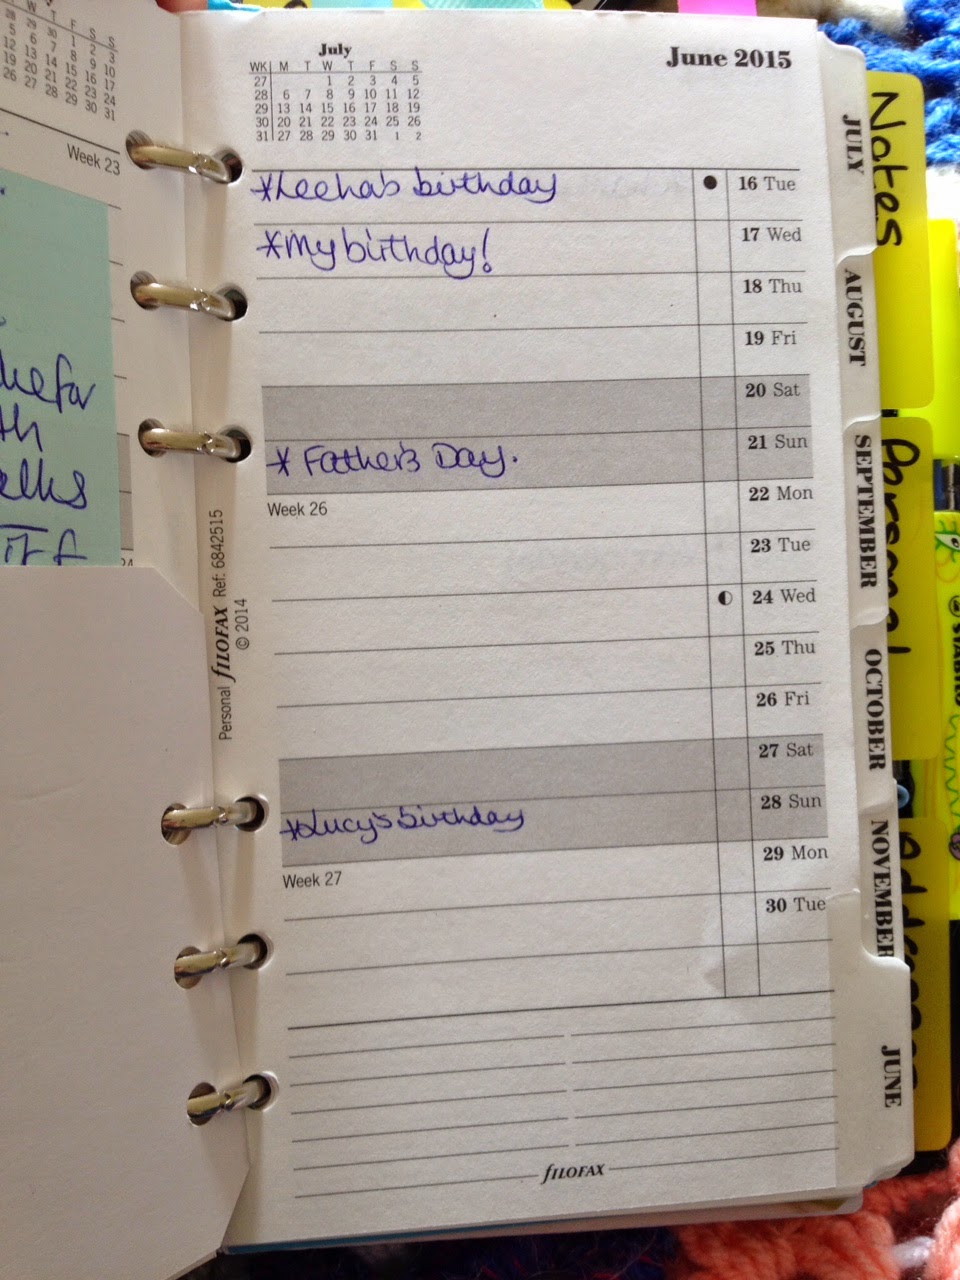 Week 23
ke for
th
alks
IT F
24
July
June 2015
WK M T W T F S S
27 1 2 3 4 5
28 6 7 8 9 10 11 12
29 13 14 15 16 17 18 19
30 20 21 22 23 24 25 26
31 27 28 29 30 31 1 2
*Leeha's birthday 16 Tue
*My birthday! 17 Wed
18 Thu
19 Fri
20 Sat
* Father's Day. 21 Sun
Week 26 22 Mon
23 Tue
24 Wed
25 Thu
26 Fri
27 Sat
*Lucy's birthday 28 Sun
Week 27 29 Mon
30 Tue
fILOFAX
Personal fILOFAX Ref: 6842515
© 2014
JULY
AUGUST
SEPTEMBER
OCTOBER
NOVEMBER
JUNE
Notes
Personal
Addresses